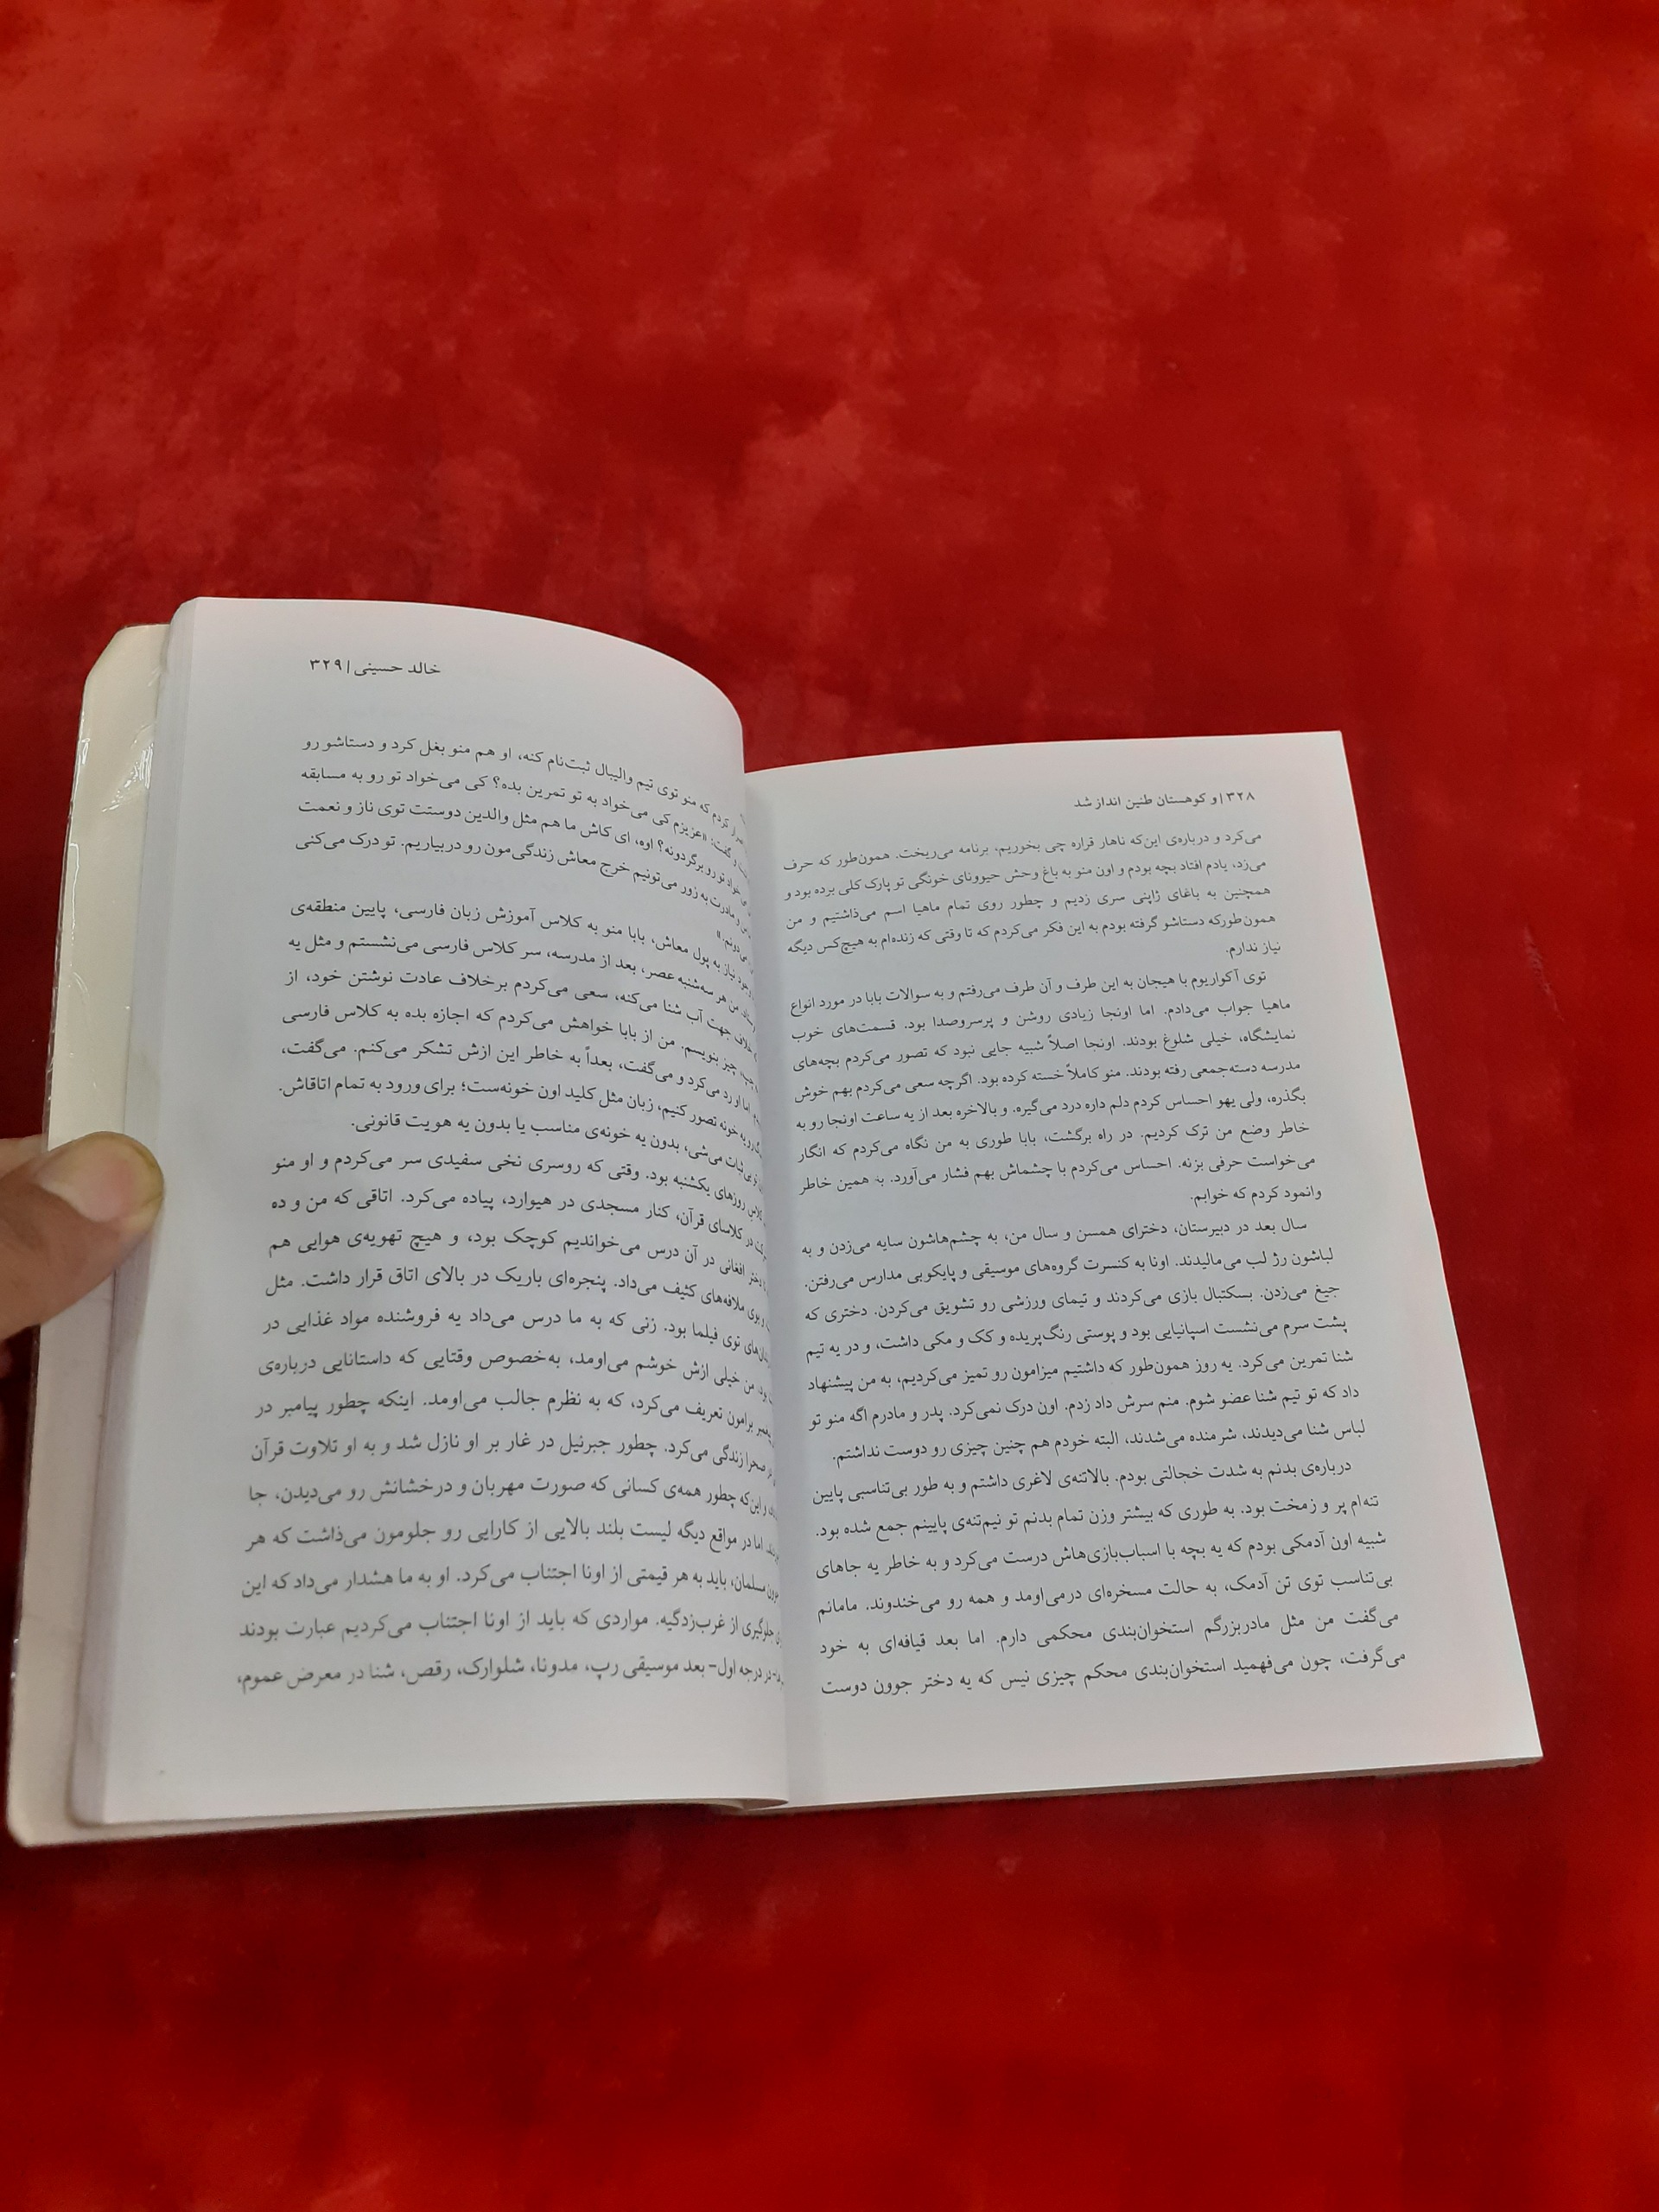 ۳۲۸ | و کوهستان طنین انداز شد
می‌کرد و درباره‌ی این‌که ناهار قراره چی بخوریم، برنامه می‌ریخت. همون‌طور که حرف
می‌زد، یادم افتاد بچه بودم و اون منو به باغ وحش حیوونای خونگی تو پارک کلی برده بود و
همچنین به باغای ژاپنی سری زدیم و چطور روی تمام ماهیا اسم می‌ذاشتیم و من
همون‌طورکه دستاشو گرفته بودم به این فکر می‌کردم که تا وقتی که زنده‌ام به هیچ‌کس دیگه
نیاز ندارم.
توی آکواریوم با هیجان به این طرف و آن طرف می‌رفتم و به سوالات بابا در مورد انواع
ماهیا جواب می‌دادم. اما اونجا زیادی روشن و پرسروصدا بود. قسمت‌های خوب
نمایشگاه، خیلی شلوغ بودند. اونجا اصلاً شبیه جایی نبود که تصور می‌کردم بچه‌های
مدرسه دسته‌جمعی رفته بودند. منو کاملاً خسته کرده بود. اگرچه سعی می‌کردم بهم خوش
بگذره، ولی یهو احساس کردم دلم داره درد می‌گیره. و بالاخره بعد از یه ساعت اونجا رو به
خاطر وضع من ترک کردیم. در راه برگشت، بابا طوری به من نگاه می‌کردم که انگار
می‌خواست حرفی بزنه. احساس می‌کردم با چشماش بهم فشار می‌آورد. به همین خاطر
وانمود کردم که خوابم.
سال بعد در دبیرستان، دخترای همسن و سال من، به چشم‌هاشون سایه می‌زدن و به
لباشون رژ لب می‌مالیدند. اونا به کنسرت گروه‌های موسیقی و پایکوبی مدارس می‌رفتن.
جیغ می‌زدن. بسکتبال بازی می‌کردند و تیمای ورزشی رو تشویق می‌کردن. دختری که
پشت سرم می‌نشست اسپانیایی بود و پوستی رنگ‌پریده و کک و مکی داشت، و در یه تیم
شنا تمرین می‌کرد. یه روز همون‌طور که داشتیم میزامون رو تمیز می‌کردیم، به من پیشنهاد
داد که تو تیم شنا عضو شوم. منم سرش داد زدم. اون درک نمی‌کرد. پدر و مادرم اگه منو تو
لباس شنا می‌دیدند، شرمنده می‌شدند، البته خودم هم چنین چیزی رو دوست نداشتم.
درباره‌ی بدنم به شدت خجالتی بودم. بالاتنه‌ی لاغری داشتم و به طور بی‌تناسبی پایین
تنه‌ام پر و زمخت بود. به طوری که بیشتر وزن تمام بدنم تو نیم‌تنه‌ی پایینم جمع شده بود.
شبیه اون آدمکی بودم که یه بچه با اسباب‌بازی‌هاش درست می‌کرد و به خاطر یه جاهای
بی‌تناسب توی تن آدمک، به حالت مسخره‌ای درمی‌اومد و همه رو می‌خندوند. مامانم
می‌گفت من مثل مادربزرگم استخوان‌بندی محکمی دارم. اما بعد قیافه‌ای به خود
می‌گرفت، چون می‌فهمید استخوان‌بندی محکم چیزی نیس که یه دختر جوون دوست
خالد حسینی | ۳۲۹
کردم که منو توی تیم والیبال ثبت‌نام کنه، او هم منو بغل کرد و دستاشو رو
و گفت: «عزیزم کی می‌خواد به تو تمرین بده؟ کی می‌خواد تو رو به مسابقه
تو رو برگردونه؟ اوه، ای کاش ما هم مثل والدین دوستت توی ناز و نعمت
و مادرت به زور می‌تونیم خرج معاش زندگی‌مون رو دربیاریم. تو درک می‌کنی
نیاز به پول معاش، بابا منو به کلاس آموزش زبان فارسی، پایین منطقه‌ی
من هر سه‌شنبه عصر، بعد از مدرسه، سر کلاس فارسی می‌نشستم و مثل یه
جهت آب شنا می‌کنه، سعی می‌کردم برخلاف عادت نوشتن خود، از
چیز بنویسم. من از بابا خواهش می‌کردم که اجازه بده به کلاس فارسی
اما او رد می‌کرد و می‌گفت، بعداً به خاطر این ازش تشکر می‌کنم. می‌گفت،
خونه تصور کنیم، زبان مثل کلید اون خونه‌ست؛ برای ورود به تمام اتاقاش.
بی‌ثبات می‌شی، بدون یه خونه‌ی مناسب یا بدون یه هویت قانونی.
کلاس روزهای یکشنبه بود. وقتی که روسری نخی سفیدی سر می‌کردم و او منو
در کلاسای قرآن، کنار مسجدی در هیوارد، پیاده می‌کرد. اتاقی که من و ده
دختر افغانی در آن درس می‌خواندیم کوچک بود، و هیچ تهویه‌ی هوایی هم
بوی ملافه‌های کثیف می‌داد. پنجره‌ای باریک در بالای اتاق قرار داشت. مثل
توی فیلما بود. زنی که به ما درس می‌داد یه فروشنده مواد غذایی در
بود. من خیلی ازش خوشم می‌اومد، به‌خصوص وقتایی که داستانایی درباره‌ی
برامون تعریف می‌کرد، که به نظرم جالب می‌اومد. اینکه چطور پیامبر در
صحرا زندگی می‌کرد. چطور جبرئیل در غار بر او نازل شد و به او تلاوت قرآن
و این‌که چطور همه‌ی کسانی که صورت مهربان و درخشانش رو می‌دیدن، جا
اما در مواقع دیگه لیست بلند بالایی از کارایی رو جلومون می‌ذاشت که هر
مسلمان، باید به هر قیمتی از اونا اجتناب می‌کرد. او به ما هشدار می‌داد که این
جلوگیری از غرب‌زدگیه. مواردی که باید از اونا اجتناب می‌کردیم عبارت بودند
در درجه اول- بعد موسیقی رپ، مدونا، شلوارک، رقص، شنا در معرض عموم،